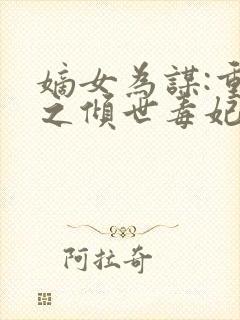 嫡女為謀:重
之傾世毒妃
阿拉奇